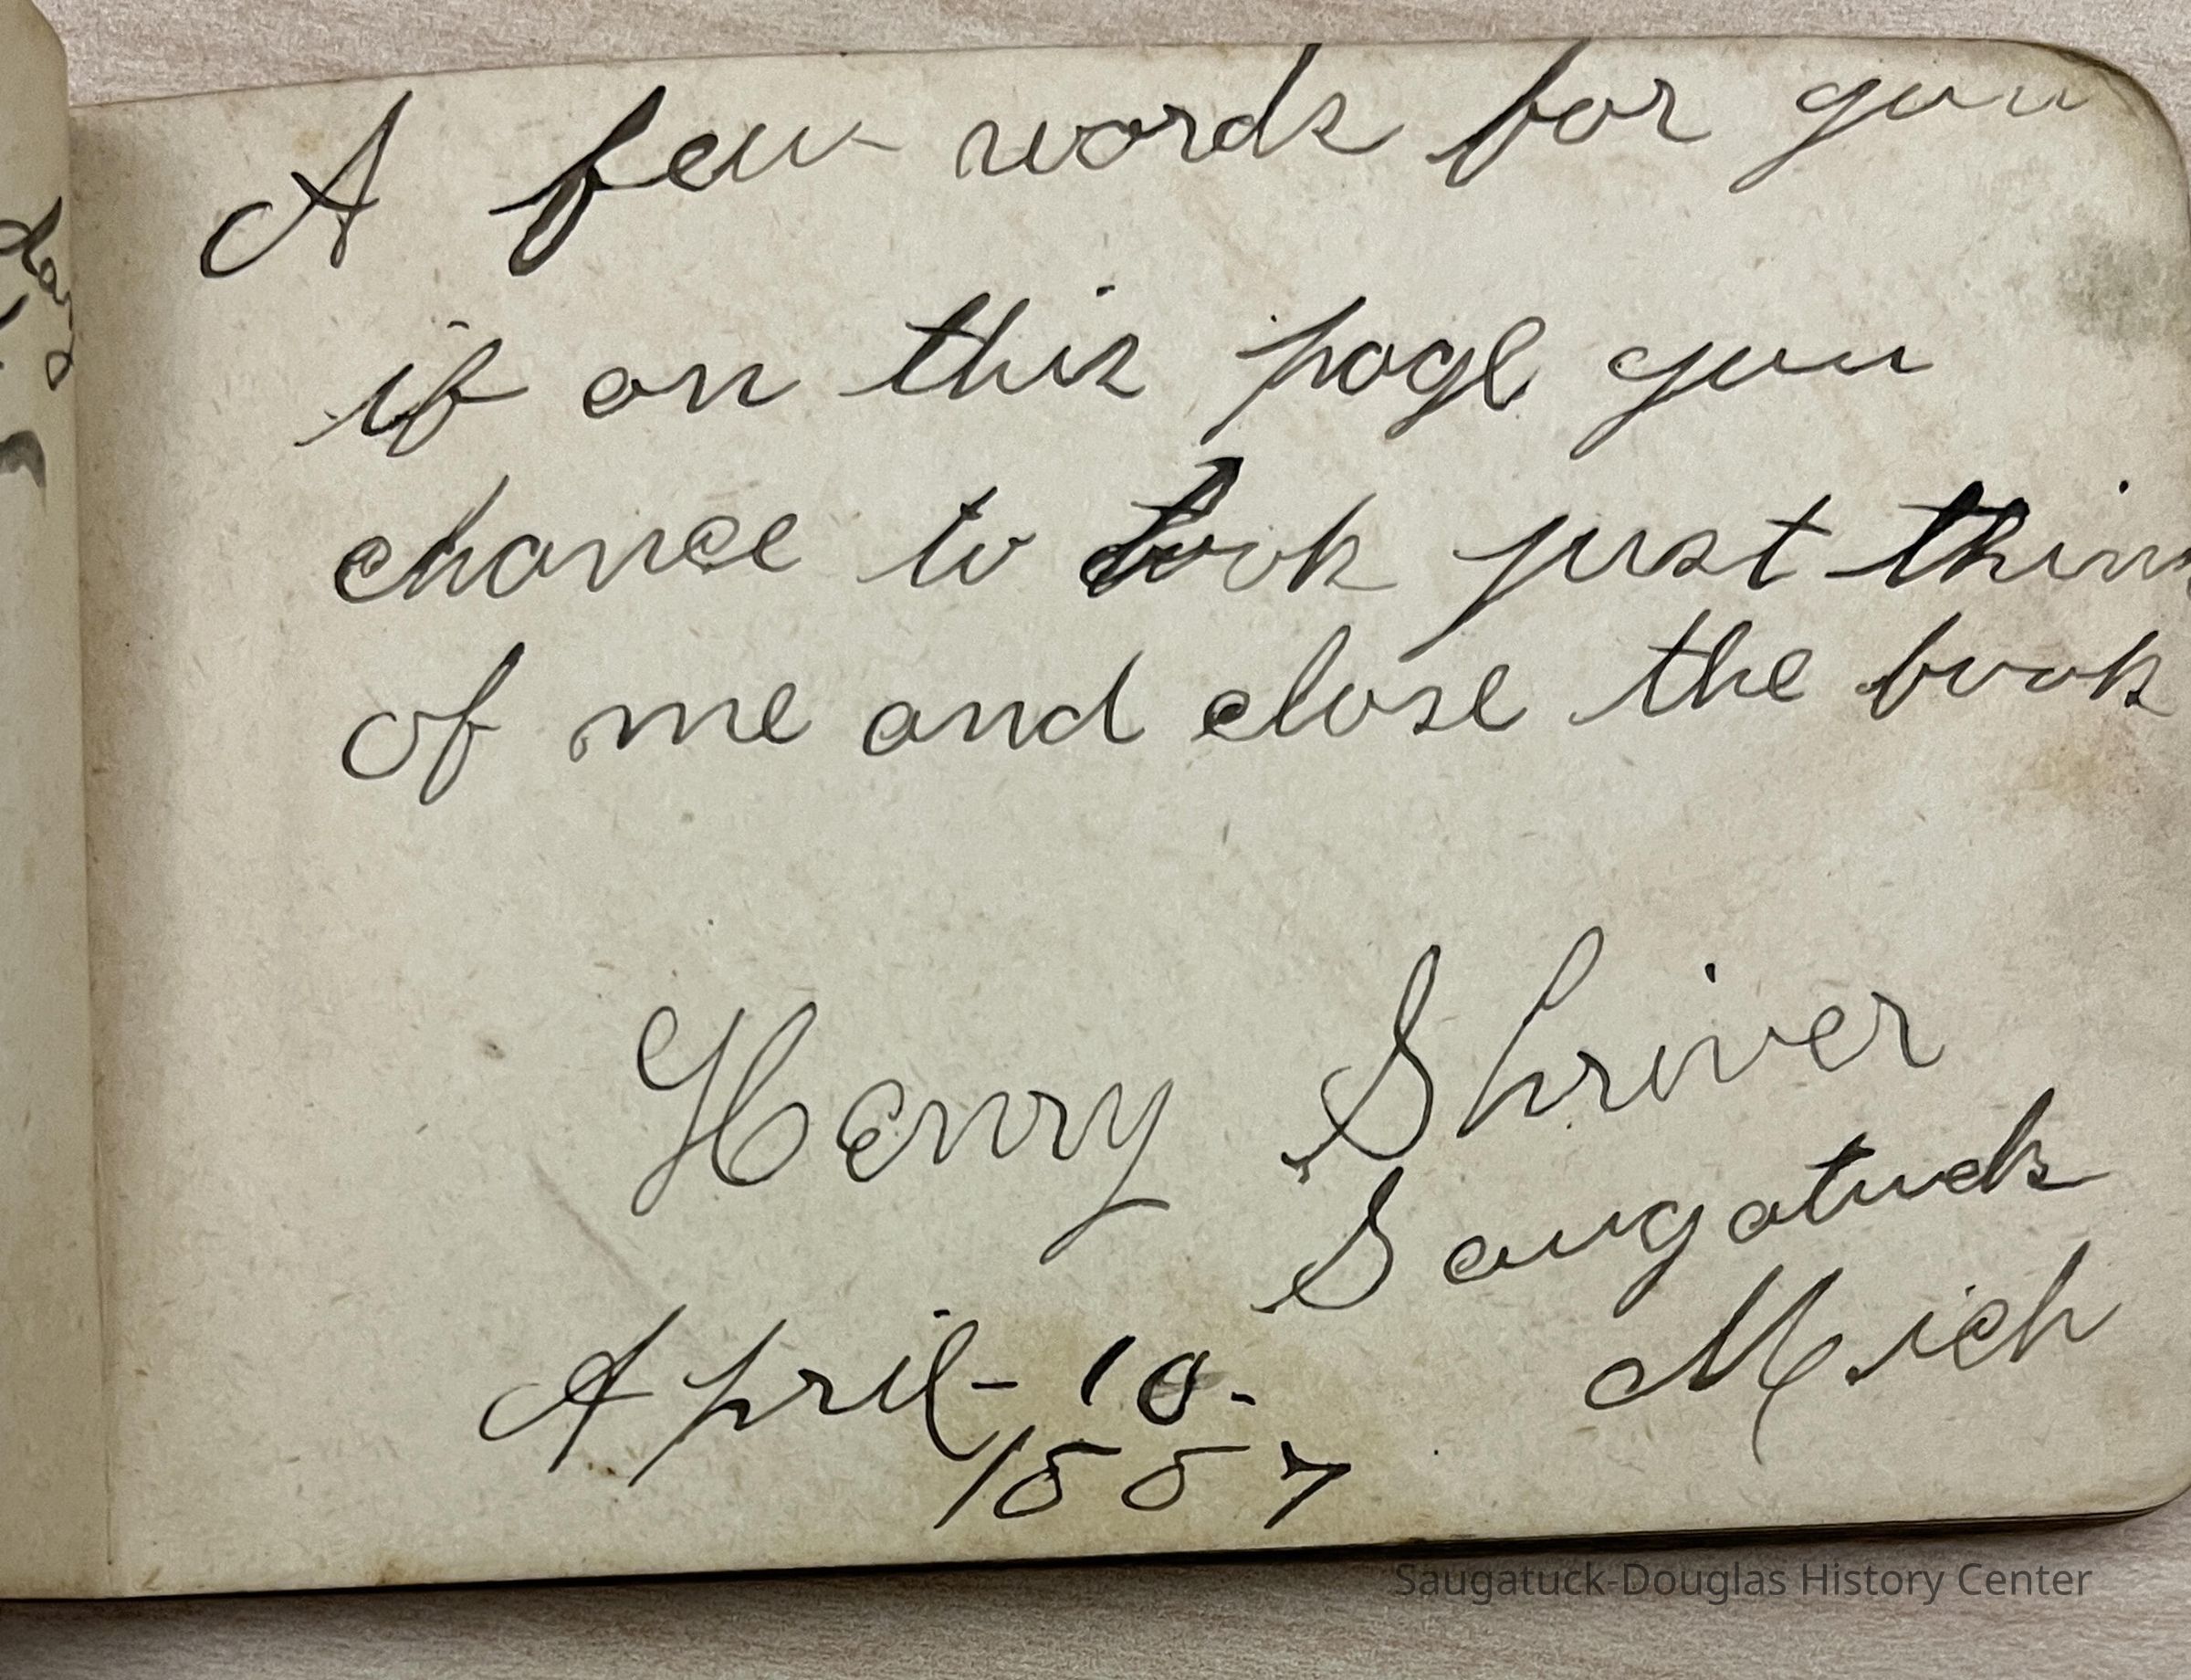 A few words for you
if on this page you
chance to look just think
of me and close the book
Henry Shriver
Saugatuck
Mich
April - 10 -
1887
Saugatuck-Douglas History Center